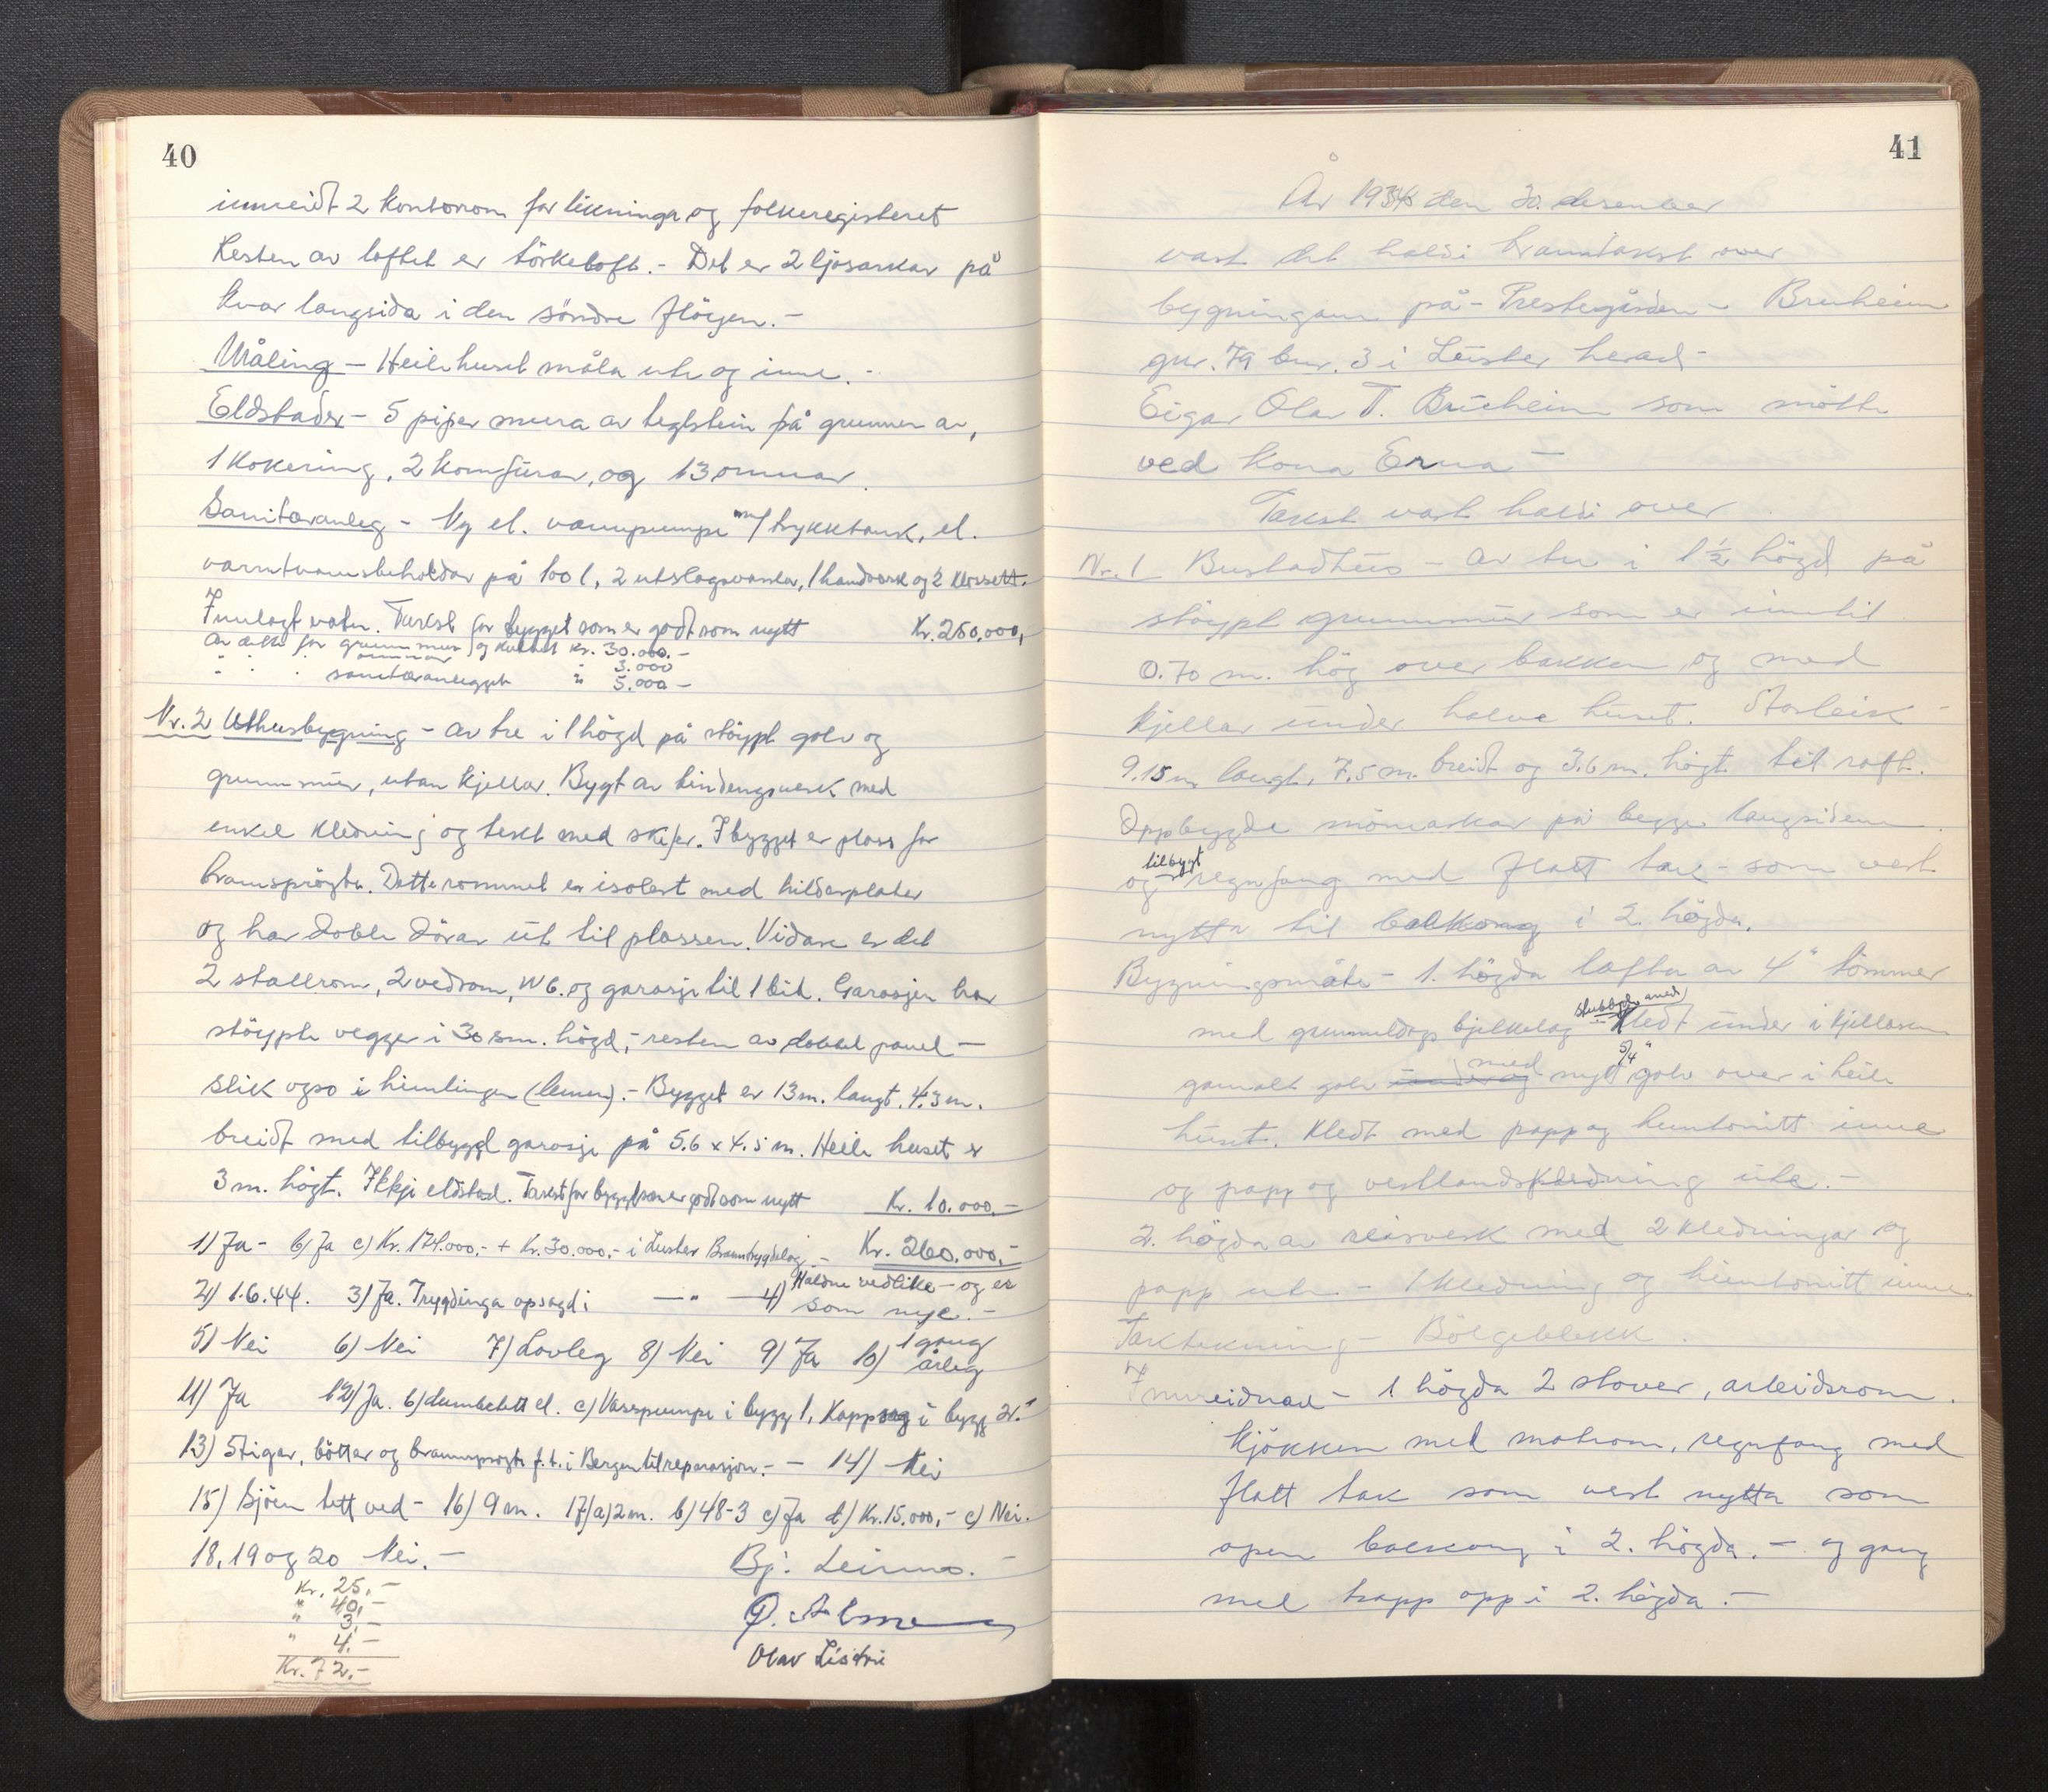 40
innreidt 2 kontorrom for likninga og folkeregisteret
Resten av loftet er törkeloft. - Det er 2 ljosarkar på
kvar langsida i den söndre flöyen. -
Måling - Heile huset måla ute og inne. -
Eldstader - 5 piper mura av teglstein på grunnen av,
1 kokering, 2 komfurar, og 13 omnar.
Sanitæranleg - Ny el. vannpumpe m/ trykktank, el.
varmtvannsbeholdar på 100 l, 2 utslagsvasker, 1 handvask og 2 klossett.
Innlagt vatn. Takst for bygget som er godt som nytt Kr. 250.000,
Av dette for grunnmur og kjellar Kr. 30.000.-
" " " omnar " 3.000
" " " sanitæranlegget " 5.000 -
Nr. 2 Uthusbygning - av tre i 1 högd på stöypt golv og
grunnmur, utan kjellar. Bygt av bindingsverk med
enkel kledning og tekt med skifer. I bygget er plass for
brannspröyta. Dette rommet er isolert med hilderplater
og har doble dörar ut til plassen. Vidare er det
2 stallrom, 2 vedrom, W6. og garasje til 1 bil. Garasjen har
stöypte vegger i 30 sm. högd, - resten av dobbel panel -
slik ogso i himlingen (lemen). - Bygget er 13 m. langt, 4.3 m.
breidt med tilbygd garasje på 5.6 x 4.5 m. Heile huset er
3 m. högt. Ikkje eldstad. Takst for bygget som er godt som nytt Kr. 10.000.-
1) Ja - b) Ja c) Kr. 174.000,- + Kr. 30.000,- i Luster Branntrygdelag - Kr. 260.000.-
2) 1.6.44. 3) Ja. Trygdinga opsagd i — " — 4) Haldne vedlike - og er
som nye. -
5) Nei 6) Nei 7) Lovleg 8) Nei 9) Ja 10) 1 gong
årleg
11) Ja 12) Ja. b) dumbelett el. c) Vasspumpe i bygg 1, Kappsag i bygg 2.
13) Stigar, bötter og brannspröyte f.t. i Bergen til reparasjon. - - 14) Nei
15) Sjöen tett ved - 16) 9 m. 17) a) 2 m. b) 48-3 c) Ja d) Kr. 15.000,- e) Nei.
18, 19 og 20 Nei. -
Bj. Leirmo. -
Kr. 25,-
" 40,-
" 3,-
" 4.-
Kr. 72.-
Olav Listrie
41
År 1945 den 30. desember
vart det haldi branntakst over
bygningann på - Prestegården - Bruheim
gnr. 79 bnr. 3 i Luster herad -
Eigar Olav T. Bruheim som mötte
ved kona Erna -
Takst vart haldi over
Nr. 1 Bustadhus - av tre i 1 1/2 högd på
stöypt grunnmur som er inntil
0.70 m. hög over bakken, og med
kjellar under halve huset. Storleik -
9.15 m langt, 7.5 m. breidt og 3.6 m. högt til raft.
Oppbygde mönearkar på begge langsidene.
og tilbygt regnfang med flatt tak - som vert
nytta til balkong i 2. högda.
Bygningsmåte - 1. högda lafta av 4" tömmer
med grunnelags bjelkelag stubbgolv med kledt under i kjellaren
gamalt golv med nytt 5/4" golv over i heile
huset. Kledt med papp og huntonitt inne
og papp og vestlandskledning ute. -
2. högda av reisverk med 2 kledningar og
papp ute - 1 kledning og huntonitt inne.
Taktekning - Bölgeblekk.
Innreidnad - 1. högda 2 stover, arbeidsrom.
kjökken med matrom, regnfang med
flatt tak som vert nytta som
open balkong i 2. högda. - og gang
med trapp opp i 2. högda. -